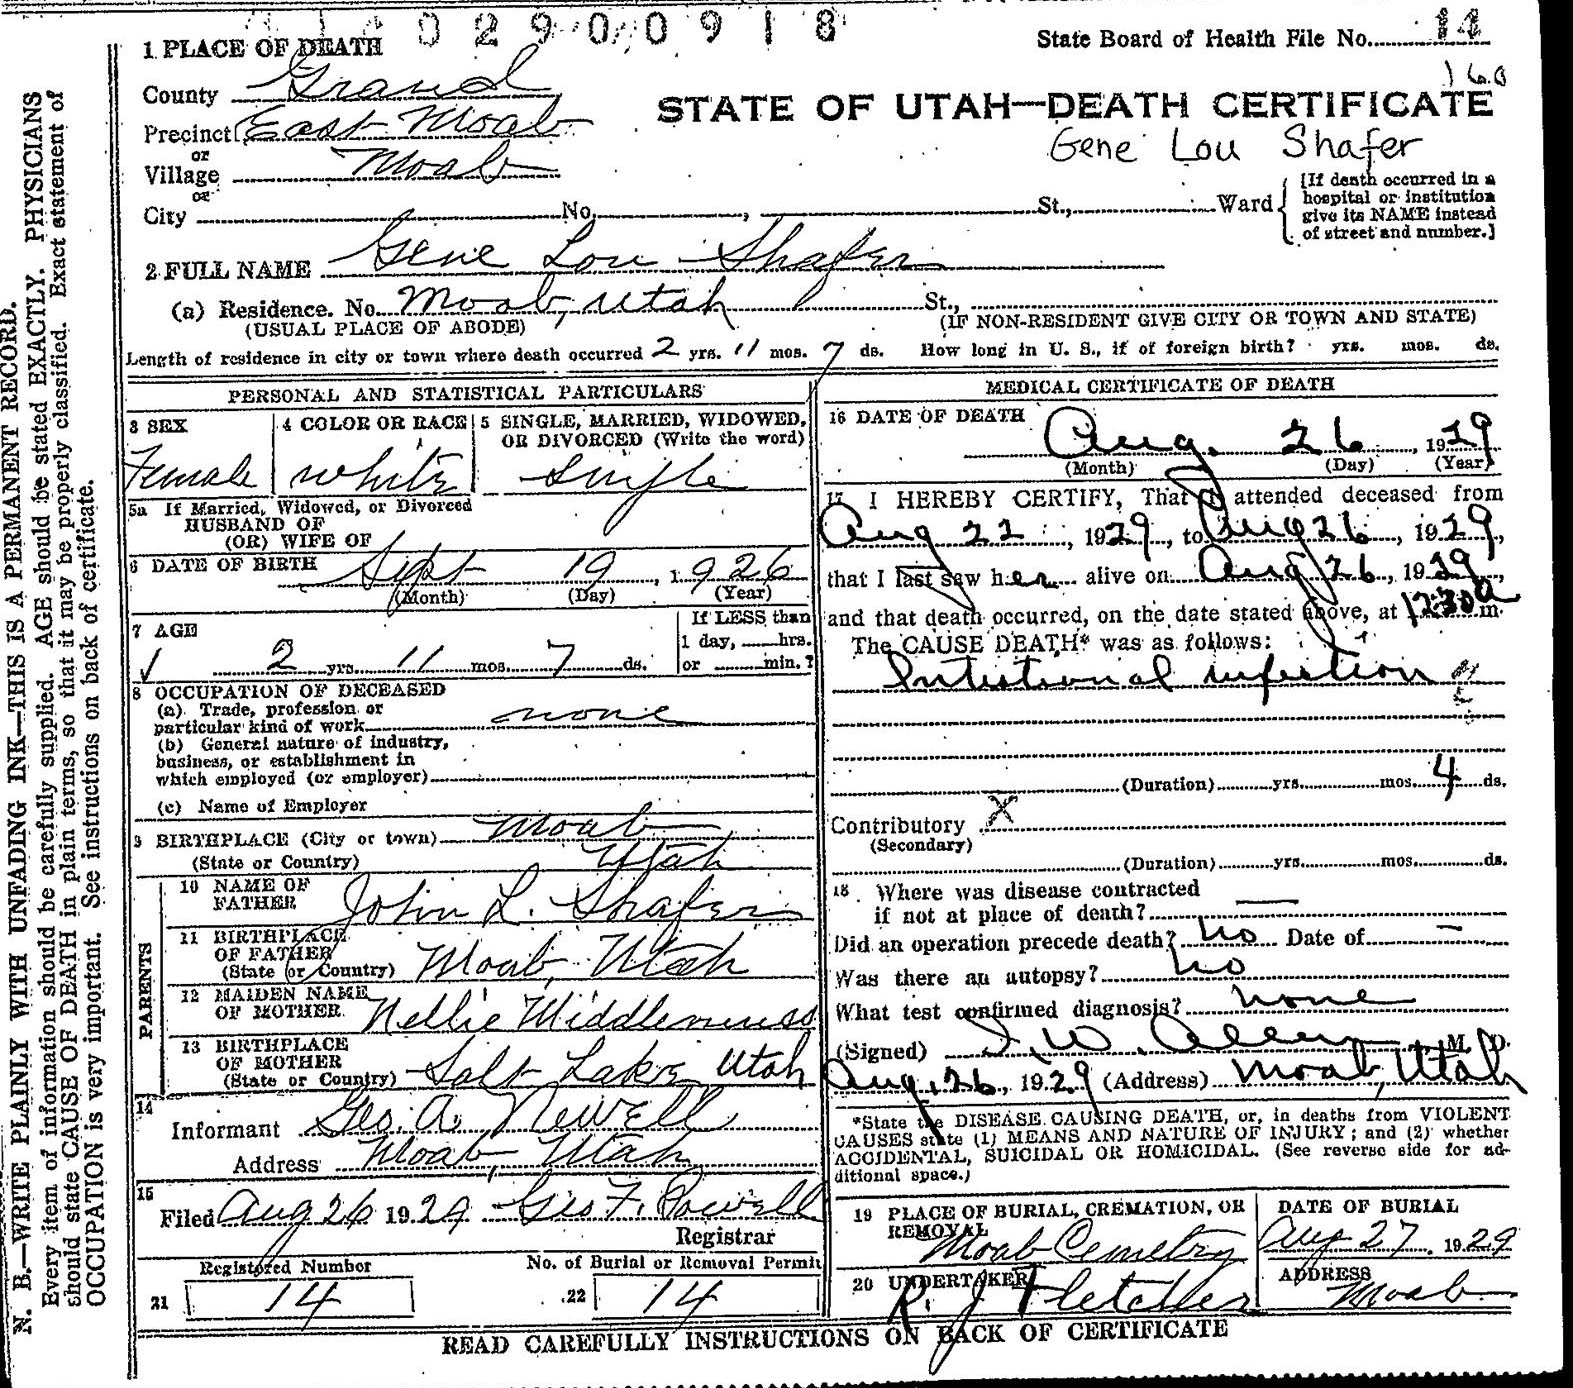 0 2 9 0 0 9 1 8
State Board of Health File No. 14
160
1 PLACE OF DEATH
County Grand
STATE OF UTAH—DEATH CERTIFICATE
Precinct East Moab
Gene Lou Shafer
or
Village Moab
or
City No. , St., Ward
[If death occurred in a
hospital or institution
give its NAME instead
of street and number.]
2 FULL NAME Gene Lou Shafer
(a) Residence. No. Moab, Utah St.,
(USUAL PLACE OF ABODE) (IF NON-RESIDENT GIVE CITY OR TOWN AND STATE)
Length of residence in city or town where death occurred 2 yrs. 11 mos. 7 ds. How long in U. S., if of foreign birth? yrs. mos. ds.
PERSONAL AND STATISTICAL PARTICULARS
3 SEX
Female
4 COLOR OR RACE
White
5 SINGLE, MARRIED, WIDOWED,
OR DIVORCED (Write the word)
Single
5a If Married, Widowed, or Divorced
HUSBAND OF
(OR) WIFE OF
6 DATE OF BIRTH Sept 19, 1926
(Month) (Day) (Year)
7 AGE
2 yrs. 11 mos. 7 ds.
If LESS than
1 day, hrs.
or min.?
8 OCCUPATION OF DECEASED
(a) Trade, profession or
particular kind of work none
(b) General nature of industry,
business, or establishment in
which employed (or employer)
(c) Name of Employer
9 BIRTHPLACE (City or town) Moab
(State or Country) Utah
PARENTS
10 NAME OF
FATHER John L. Shafer
11 BIRTHPLACE
OF FATHER
(State or Country) Moab, Utah
12 MAIDEN NAME
OF MOTHER Nellie Middlemiss
13 BIRTHPLACE
OF MOTHER
(State or Country) Salt Lake, Utah
14
Informant Geo. A. Newell
Address Moab, Utah
15
Filed Aug 26 1929 Geo F. Powell
Registrar
Registered Number
21 14
No. of Burial or Removal Permit
22 14
MEDICAL CERTIFICATE OF DEATH
16 DATE OF DEATH Aug. 26, 1929
(Month) (Day) (Year)
17 I HEREBY CERTIFY, That I attended deceased from
Aug 22, 1929, to Aug 26, 1929,
that I last saw her alive on Aug 26, 1929,
and that death occurred, on the date stated above, at 12:30 a m.
The CAUSE DEATH* was as follows:
Intestional infection
(Duration) yrs. mos. 4 ds.
Contributory X
(Secondary)
(Duration) yrs. mos. ds.
18. Where was disease contracted
if not at place of death? —
Did an operation precede death? no Date of —
Was there an autopsy? no
What test confirmed diagnosis? none
(Signed) I. W. Allen, M. D.
Aug. 26, 1929 (Address) Moab, Utah
*State the DISEASE CAUSING DEATH, or, in deaths from VIOLENT
CAUSES state (1) MEANS AND NATURE OF INJURY; and (2) whether
ACCIDENTAL, SUICIDAL OR HOMICIDAL. (See reverse side for ad-
ditional space.)
19 PLACE OF BURIAL, CREMATION, OR
REMOVAL
Moab Cemetry
DATE OF BURIAL
Aug 27. 1929
20 UNDERTAKER
R. J Fletcher
ADDRESS
Moab
READ CAREFULLY INSTRUCTIONS ON BACK OF CERTIFICATE
N. B.—WRITE PLAINLY WITH UNFADING INK—THIS IS A PERMANENT RECORD.
Every item of information should be carefully supplied. AGE should be stated EXACTLY. PHYSICIANS
should state CAUSE OF DEATH in plain terms, so that it may be properly classified. Exact statement of
OCCUPATION is very important. See instructions on back of certificate.